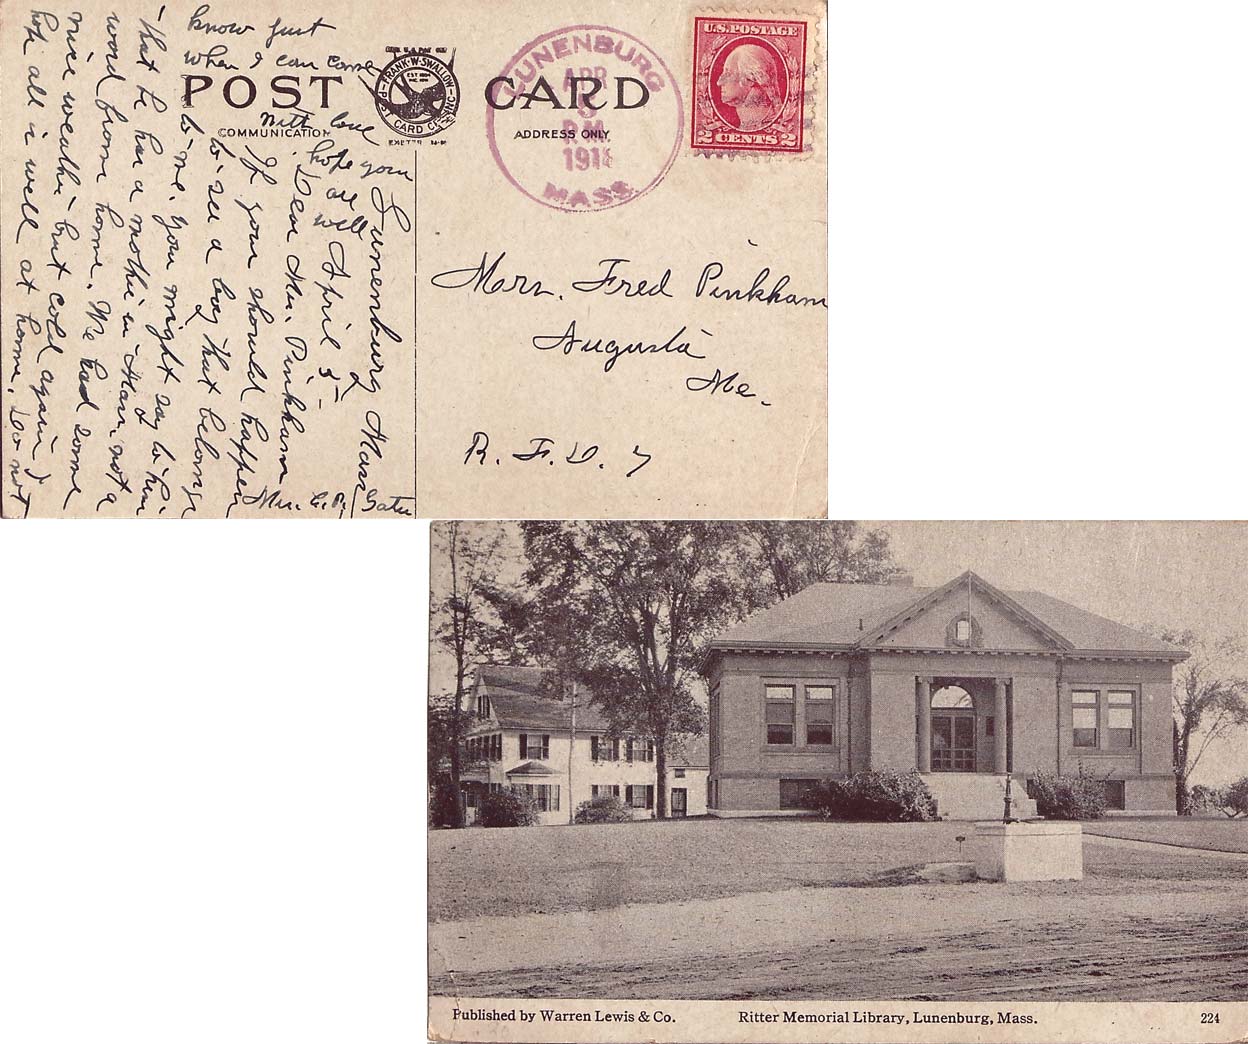 know just
when I can come
With love
hope you
are
well
POST CARD
FRANK·W·SWALLOW
POST CARD CO. INC.
EST 1894
INC. 1911
EXETER N-H
COMMUNICATION
ADDRESS ONLY
LUNENBURG
APR
5
P.M.
191
MASS.
U.S. POSTAGE
2 CENTS 2
Lunenburg Mass
April 5-
Dear Mr. Pinkham
If you should happen
to see a boy that belongs
to me. you might say to him
that he has a mother in Mass. not a
word from home. We had some
nice weather but cold again I
hope all is well at home. Do not
Mrs.
Fred Pinkham
Augusta
Me.
R. F. D. 7
Published by Warren Lewis & Co.
Ritter Memorial Library, Lunenburg, Mass.
224